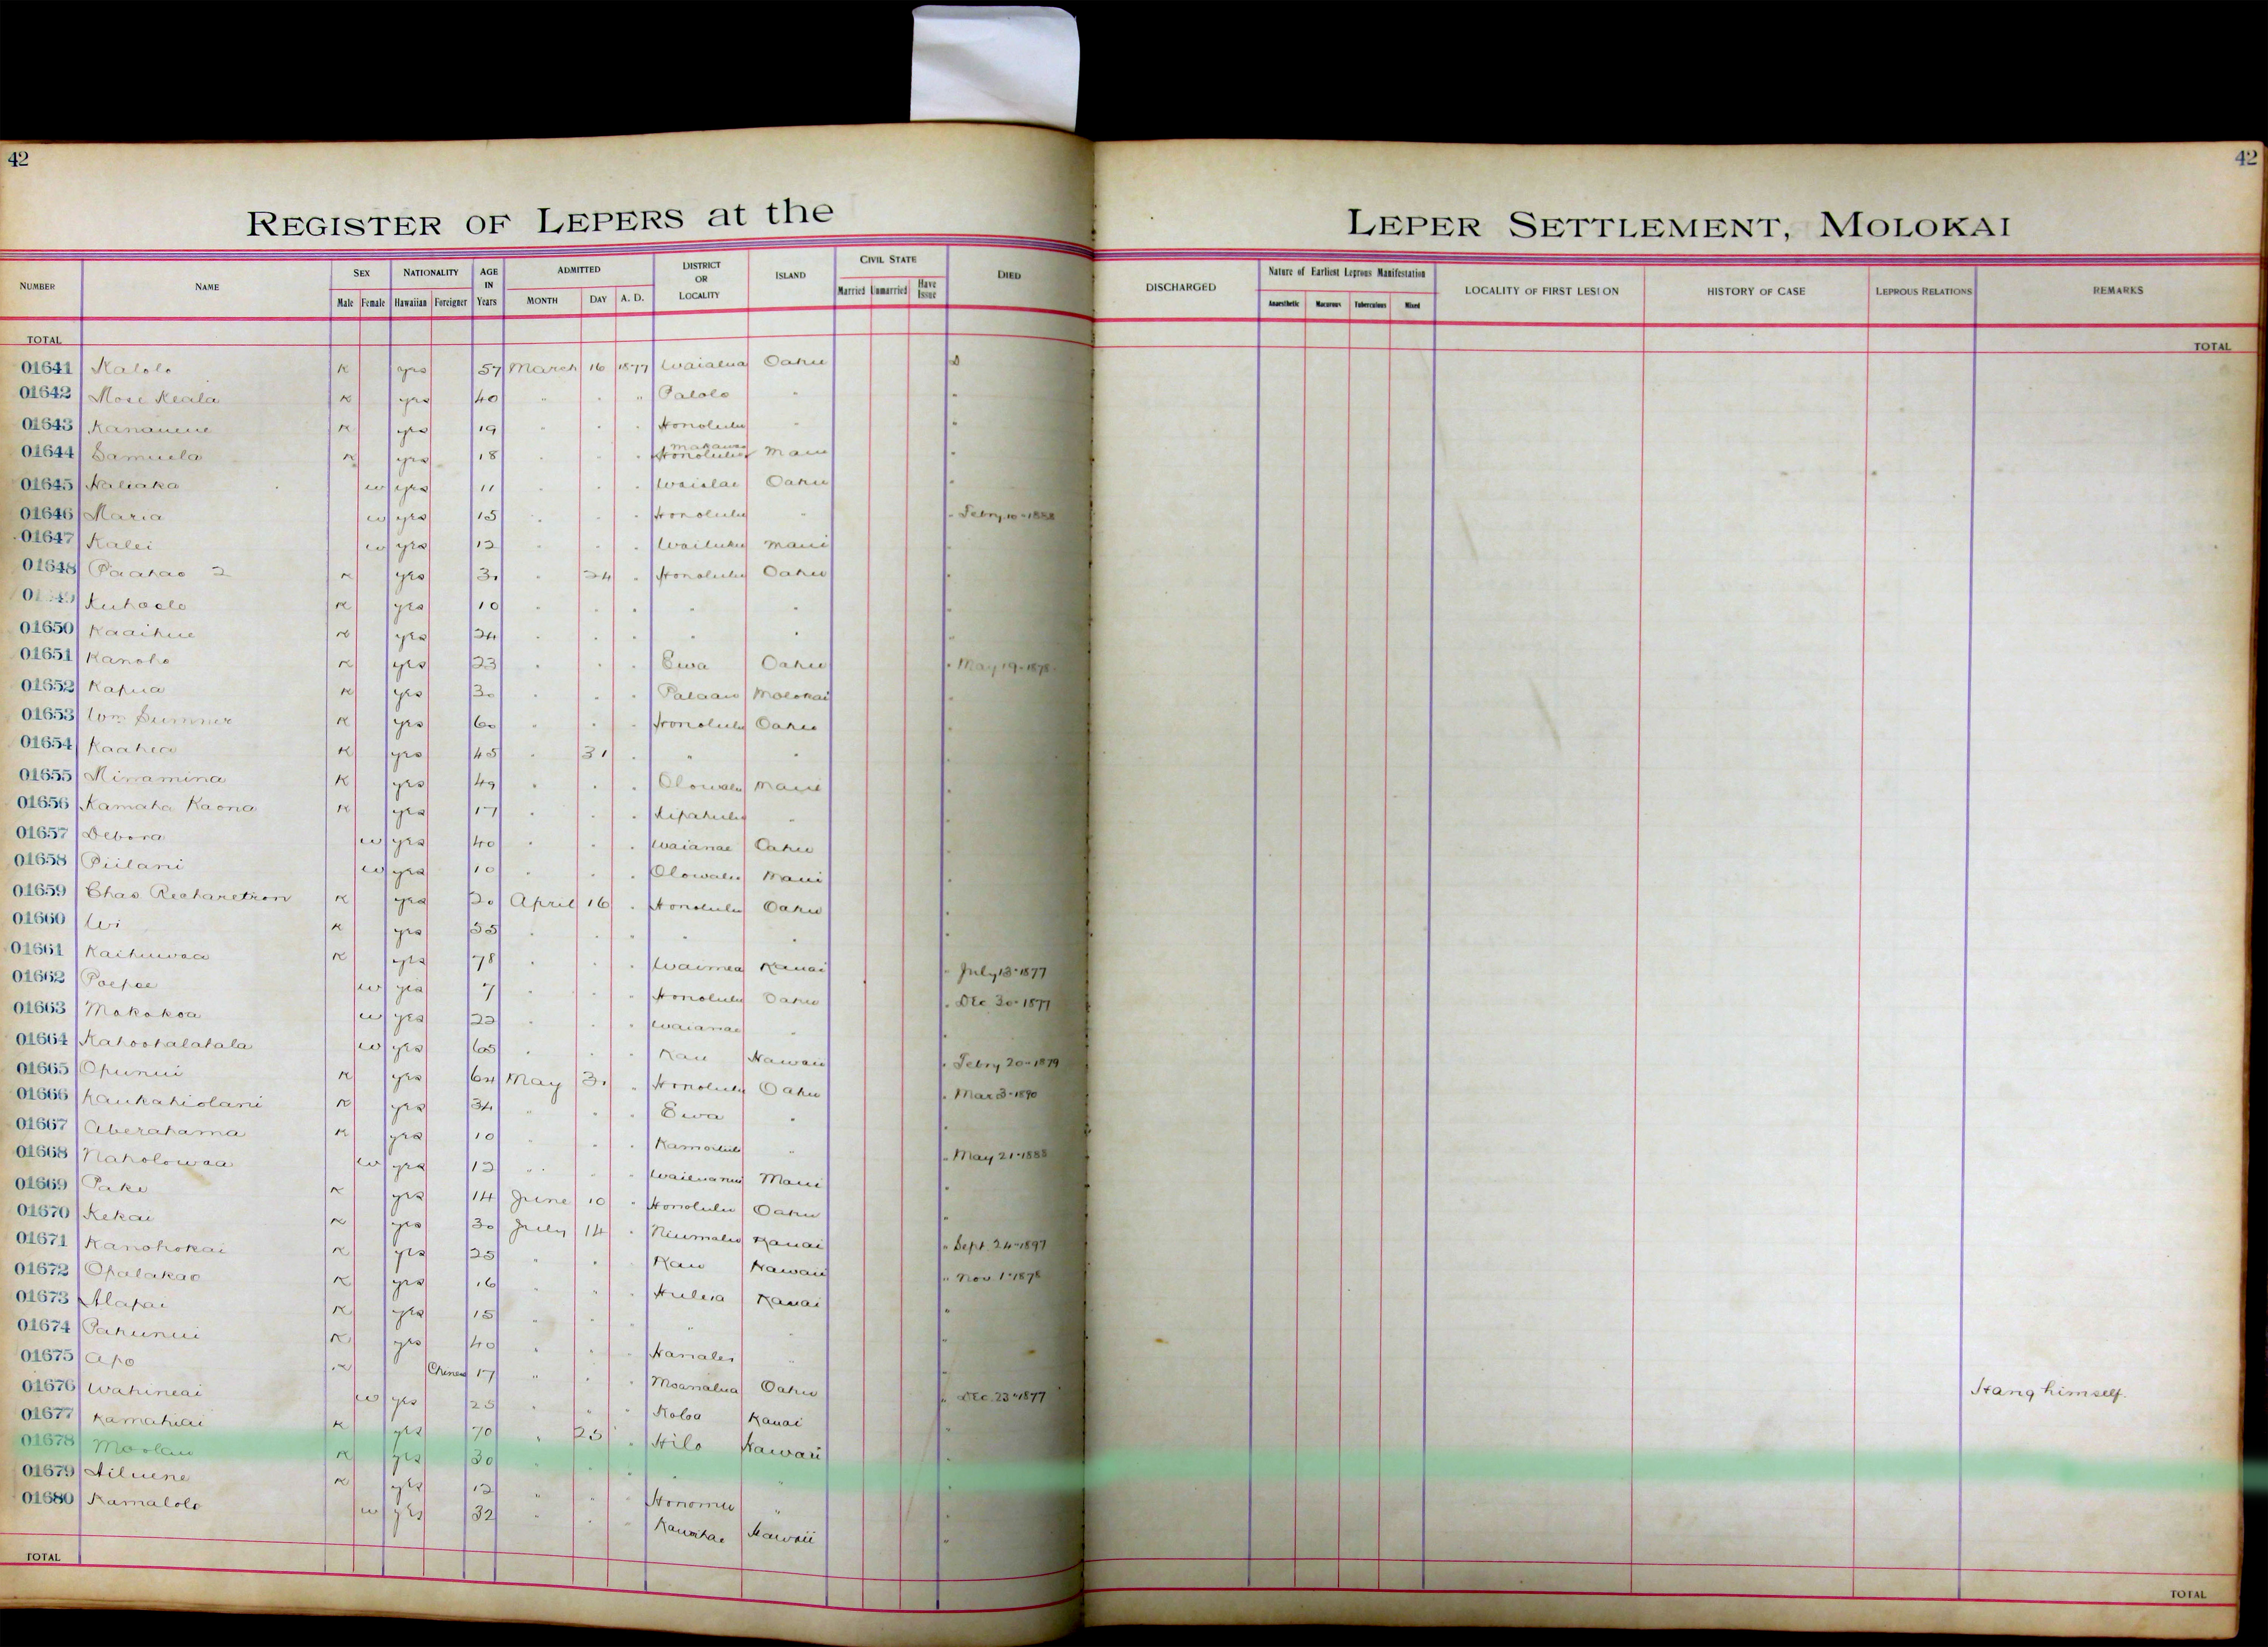 42
42
REGISTER OF LEPERS at the LEPER SETTLEMENT, MOLOKAI
NUMBER NAME SEX NATIONALITY AGE IN Years ADMITTED DISTRICT OR LOCALITY ISLAND CIVIL STATE DIED DISCHARGED Nature of Earliest Leprous Manifestation LOCALITY OF FIRST LESION HISTORY OF CASE LEPROUS RELATIONS REMARKS
Male Female Hawaiian Foreigner MONTH DAY A. D. Married Unmarried Have Issue Anaesthetic Macurous Tuberculous Mixed
TOTAL TOTAL
01641 Kalolo K yes 57 March 16 1877 Waialua Oahu D
01642 Mose Keala K yes 40 " " " Palolo " "
01643 Kananene K yes 19 " " " Honolulu " "
01644 Samuela K yes 18 " " " Makawao Honolulu Maui "
01645 Haliaka w yes 11 " " " Waialae Oahu "
01646 Maria w yes 15 " " " Honolulu " " Febry 10-1888
01647 Kalei w yes 12 " " " Wailuku Maui "
01648 Paahao 2 K yes 30 " 24 " Honolulu Oahu "
Kuhaelo K yes 10 " " " " " "
01650 Kaaihue K yes 24 " " " " " "
01651 Kanoho K yes 23 " " " Ewa Oahu " May 19-1878
01652 Kapua K yes 30 " " " Palaau Molokai "
01653 Wm Sumner K yes 60 " " " Honolulu Oahu "
01654 Kaahea K yes 45 " 31 " " " "
01655 Minamina K yes 49 " " " Olowalu Maui "
01656 Kamaha Kaona K yes 17 " " " Kipahulu " "
01657 Debora w yes 40 " " " Waianae Oahu "
01658 Piilani w yes 10 " " " Olowalu Maui "
01659 Chas Recharetson K yes 20 April 16 " Honolulu Oahu "
01660 Wi K yes 55 " " " " " "
01661 Kaihuwaa K yes 78 " " " Waimea Kauai " July 13-1877
01662 Poepoe w yes 7 " " " Honolulu Oahu " Dec 30-1877
01663 Makakoa w yes 22 " " " Waianae " "
01664 Kahoohalahala w yes 65 " " " Kau Hawaii " Febry 20-1879
01665 Opunui K yes 64 May 31 " Honolulu Oahu " Mar 3-1890
01666 Kaukahiolani K yes 34 " " " Ewa " "
01667 Aberahama K yes 10 " " " Kamoiliili " " May 21-1888
01668 Naholowaa w yes 12 " " " Wailuanui Maui "
01669 Pake K yes 14 June 10 " Honolulu Oahu "
01670 Kekai K yes 30 July 14 " Niumalu Kauai " Sept. 24-1897
01671 Kanohokai K yes 25 " " " Kau Hawaii " Nov. 1-1878
01672 Opalakao K yes 16 " " " Huleia Kauai "
01673 Alapai K yes 15 " " " " " "
01674 Pahunui K yes 40 " " " Hanalei " "
01675 Apo K Chinese 17 " " " Moanalua Oahu " Dec. 23-1877 Hang himself.
01676 Wahineai w yes 25 " " " Koloa Kauai "
01677 Kamahiai K yes 70 " 25 " Hilo Hawaii "
01678 Moolau K yes 30 " " " " " "
01679 Hiluene K yes 12 " " " Honomu " "
01680 Kamalolo w yes 32 " " " Kawaihae Hawaii "
TOTAL TOTAL